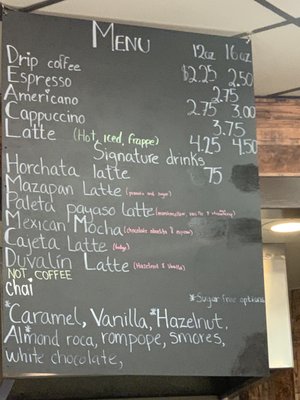 MENU
12oz 16oz
Drip coffee $2.25 2.50
Espresso 2.75
Americano 2.75 3.00
Cappuccino 3.75
Latte (Hot, iced, frappe) 4.25 4.50
Signature drinks 75
Horchata latte
Mazapan Latte
Paleta payaso Latte
Mexican Mocha (chocolate abuelita &
Cajeta Latte
Duvalín Latte (Hazelnut & Vanilla)
NOT COFFEE
Chai
*Sugar free options
*Caramel, Vanilla, *Hazelnut,
Almond roca, rompope, smores,
White chocolate,